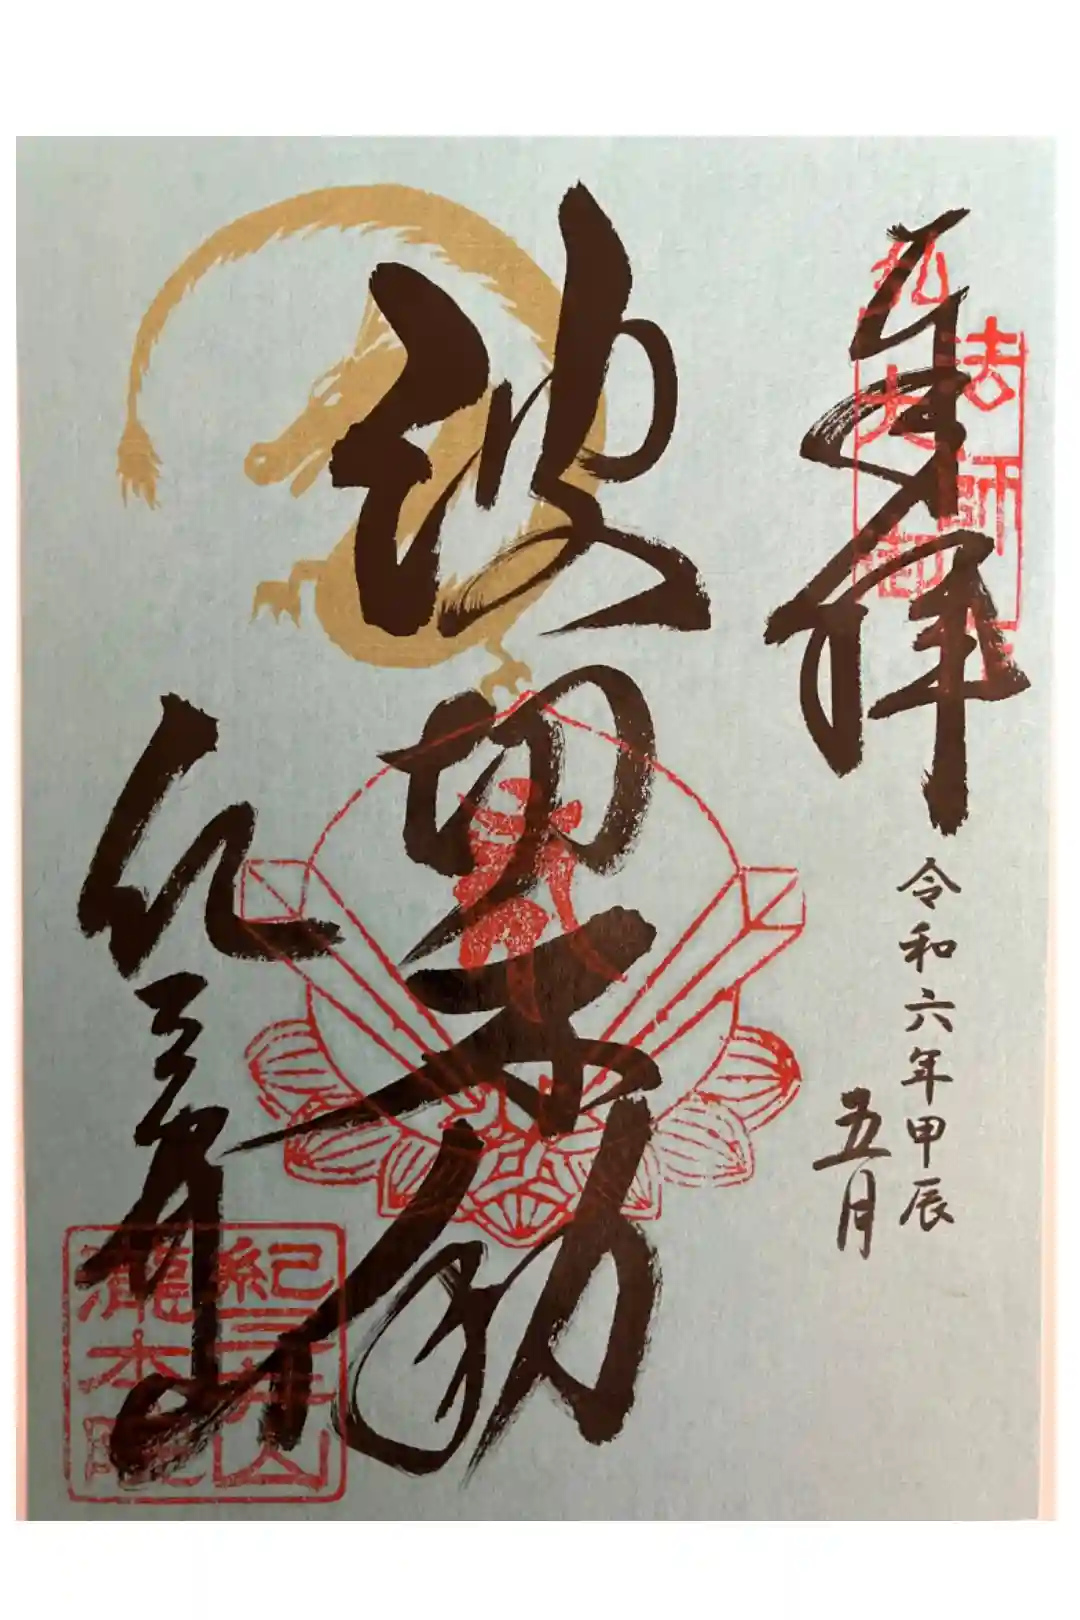 奉拝
弘法大師御
令和六年甲辰
五月
波切不動
紀三井山
紀三井山
瀧本院